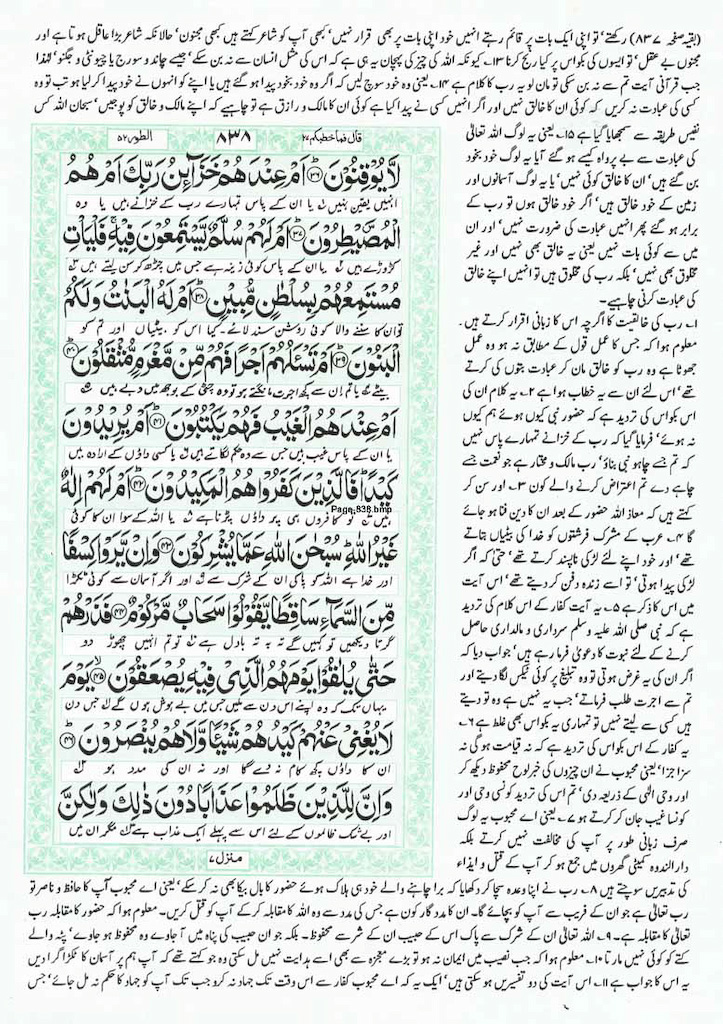 (بقیہ صفحہ ۸۳۷) رکھتے' تو اپنی ایک بات پر قائم رہتے انہیں خود اپنی بات پر بھی قرار نہیں' کبھی آپ کو شاعر کہتے ہیں کبھی مجنون' حالانکہ شاعر بڑا عاقل ہوتا ہے اور
مجنوں بے عقل' تو ایسوں کی بکواس پر کیا رنج کرنا ۱۳۔ کیونکہ اللہ کی چیز کی پہچان یہ ہی ہے کہ اس کی مثل انسان سے نہ بن سکے' جیسے چاند و سورج یا چیونٹی و جگنو' لہٰذا
جب قرآنی آیت تم سے نہ بن سکی تو مان لو یہ رب کا کلام ہے ۱۴۔ یعنی وہ خود سوچ لیں کہ اگر وہ خود بخود پیدا ہو گئے ہیں یا اپنے کو انہوں نے خود پیدا کر لیا ہو تب تو وہ
کسی کی عبادت نہ کریں کہ کوئی ان کا خالق نہیں اور اگر انہیں کسی نے پیدا کیا ہے کوئی ان کا مالک و رازق ہے تو چاہیے کہ اپنے مالک و خالق کو پوجیں' سبحان اللہ کس
نفیس طریقہ سے سمجھایا گیا ہے ۱۵۔ یعنی یہ لوگ اللہ تعالیٰ
کی عبادت سے بے پرواہ کیسے ہو گئے آیا یہ لوگ خود بخود
بن گئے ہیں' ان کا خالق کوئی نہیں' یا یہ لوگ آسمانوں اور
زمین کے خود خالق ہیں' اگر خود خالق ہوں تو رب کے
برابر ہو گئے پھر انہیں عبادت کی ضرورت نہیں' اور ان
میں سے کوئی بات نہیں یعنی یہ خالق بھی نہیں اور غیر
مخلوق بھی نہیں' بلکہ رب کی مخلوق ہیں تو انہیں اپنے خالق
کی عبادت کرنی چاہیے۔
۱۔ رب کی خالقیت کا اگرچہ اس کا زبانی اقرار کرتے ہیں۔
معلوم ہوا کہ جس کا عمل قول کے مطابق نہ ہو وہ عمل
جھوٹا ہے وہ رب کو خالق مان کر عبادت بتوں کی کرتے
تھے' اس لئے ان سے یہ خطاب ہوا ہے ۲۔ یہ کلام ان کی
اس بکواس کی تردید ہے کہ حضور نبی کیوں ہوئے ہم کیوں
نہ ہوئے' فرمایا گیا کہ رب کے خزانے تمہارے پاس نہیں
کہ تم جسے چاہو نبی بناؤ' رب مالک و مختار ہے جو نعمت جسے
چاہے دے تم اعتراض کرنے والے کون ۳۔ اور سن کر
کہتے ہیں کہ معاذ اللہ حضور کے بعد ان کا دین فنا ہو جائے
گا ۴۔ عرب کے مشرک فرشتوں کو خدا کی بیٹیاں بتاتے
تھے' اور خود اپنے لئے لڑکی ناپسند کرتے تھے' حتیٰ کہ اگر
لڑکی پیدا ہوتی' تو اسے زندہ دفن کر دیتے تھے' اس آیت
میں اس کا ذکر ہے ۵۔ یہ آیت کفار کے اس کلام کی تردید
ہے کہ نبی صلی اللہ علیہ وسلم سرداری و مالداری حاصل
کرنے کے لئے نبوت کا دعویٰ فرما رہے ہیں' جواب دیا کہ
اگر ان کی یہ غرض ہوتی تو وہ تبلیغ پر کوئی ٹیکس لگا دیتے اور
تم سے اجرت طلب فرماتے' جب یہ نہیں ہے وہ تو دیتے
ہیں کسی سے لیتے نہیں تو تمہاری یہ بکواس بھی غلط ہے ۶۔
یہ کفار کے اس بکواس کی تردید ہے کہ نہ قیامت ہو گی نہ
سزا جزا' یعنی محبوب نے ان چیزوں کی خبر لوح محفوظ دیکھ کر
اور وحی الٰہی کے ذریعہ دی' تم اس کی تردید کونسی وحی اور
کونسا غیب جان کر کرتے ہو ۷۔ یعنی اے محبوب یہ لوگ
صرف زبانی طور پر آپ کی مخالفت نہیں کرتے بلکہ
دارالندوہ کمیٹی گھروں میں جمع ہو کر آپ کے قتل و ایذاء
قال فما خطبکم ۲۷ ۸۳۸ الطور ۵۲
لَّا يُوْقِنُوْنَ ﴿۳۶﴾ اَمْ عِنْدَهُمْ خَزَآئِنُ رَبِّكَ اَمْ هُمُ
انہیں یقین نہیں یا ان کے پاس تمہارے رب کے خزانے ہیں یا وہ
الْمُصَۜيْطِرُوْنَ ﴿۳۷﴾ اَمْ لَهُمْ سُلَّمٌ يَّسْتَمِعُوْنَ فِيْهِ ۚ فَلْيَاْتِ
کڑوڑے ہیں یا ان کے پاس کوئی زینہ ہے جس میں چڑھ کر سن لیتے ہیں
مُسْتَمِعُهُمْ بِسُلْطٰنٍ مُّبِيْنٍ ﴿۳۸﴾ اَمْ لَهُ الْبَنٰتُ وَلَكُمُ
تو ان کا سننے والا کوئی روشن سند لائے کیا اس کو بیٹیاں اور تم کو
الْبَنُوْنَ ﴿۳۹﴾ اَمْ تَسْـَٔلُهُمْ اَجْرًا فَهُمْ مِّنْ مَّغْرَمٍ مُّثْقَلُوْنَ ﴿۴۰﴾
بیٹے یا تم ان سے کچھ اجرت مانگتے ہو تو وہ چٹی کے بوجھ میں دبے ہیں
اَمْ عِنْدَهُمُ الْغَيْبُ فَهُمْ يَكْتُبُوْنَ ﴿۴۱﴾ اَمْ يُرِيْدُوْنَ
یا ان کے پاس غیب ہیں جس سے وہ حکم لگاتے ہیں یا کسی داؤں کے ارادہ میں
كَيْدًا ؕ فَالَّذِيْنَ كَفَرُوْا هُمُ الْمَكِيْدُوْنَ ﴿۴۲﴾ اَمْ لَهُمْ اِلٰهٌ
Page-838.bmp
ہیں تو کافروں ہی پر داؤں پڑنا ہے یا اللہ کے سوا ان کا کوئی
غَيْرُ اللّٰهِ ؕ سُبْحٰنَ اللّٰهِ عَمَّا يُشْرِكُوْنَ ﴿۴۳﴾ وَاِنْ يَّرَوْا كِسْفًا
اور خدا ہے اللہ کو پاکی ان کے شرک سے اور اگر آسمان سے کوئی ٹکڑا
مِّنَ السَّمَآءِ سَاقِطًا يَّقُوْلُوْا سَحَابٌ مَّرْكُوْمٌ ﴿۴۴﴾ فَذَرْهُمْ
گرتا دیکھیں تو کہیں گے تہ بہ تہ بادل ہے تو تم انہیں چھوڑ دو
حَتّٰى يُلٰقُوْا يَوْمَهُمُ الَّذِيْ فِيْهِ يُصْعَقُوْنَ ﴿۴۵﴾ يَوْمَ
یہاں تک کہ وہ اپنے اس دن سے ملیں جس میں بے ہوش ہوں گے جس دن
لَا يُغْنِيْ عَنْهُمْ كَيْدُهُمْ شَيْـًٔا وَّلَا هُمْ يُنْصَرُوْنَ ﴿۴۶﴾
ان کا داؤں کچھ کام نہ دے گا اور نہ ان کی مدد ہو
وَاِنَّ لِلَّذِيْنَ ظَلَمُوْا عَذَابًا دُوْنَ ذٰلِكَ وَلٰكِنَّ
اور بے شک ظالموں کے لئے اس سے پہلے ایک عذاب ہے مگر ان میں
منزل ۷
کی تدبیریں سوچتے ہیں ۸۔ رب نے اپنا وعدہ سچا کر دکھایا کہ برا چاہنے والے خود ہی ہلاک ہوئے حضور کا بال بیکا بھی نہ کر سکے' یعنی اے محبوب آپ کا حافظ و ناصر تو
رب تعالیٰ ہے جو ان کے فریب سے آپ کو بچائے گا۔ ان کا مددگار کون ہے جس کی مدد سے وہ اللہ کا مقابلہ کر کے آپ کو قتل کریں۔ معلوم ہوا کہ حضور کا مقابلہ رب
تعالیٰ کا مقابلہ ہے۔ ۹۔ اللہ تعالیٰ ان کے شرک سے پاک اس کے حبیب ان کے شر سے محفوظ۔ بلکہ جو ان حبیب کی پناہ میں آ جاوے وہ محفوظ ہو جاوے' پٹہ والے
کتے کو کوئی نہیں مارتا ۱۰۔ معلوم ہوا کہ جب نصیب میں ایمان نہ ہو تو بڑے معجزہ سے بھی اسے ہدایت نہیں مل سکتی وہ جو کہتے تھے کہ آپ ہم پر آسمان کا ٹکڑا گرا دیں
یہ اس کا جواب ہے ۱۱۔ اس آیت کی دو تفسیریں ہو سکتی ہیں' ایک یہ کہ اے محبوب کفار سے اس وقت تک جہاد نہ کرو جب تک آپ کو جہاد کا حکم نہ مل جائے' جس